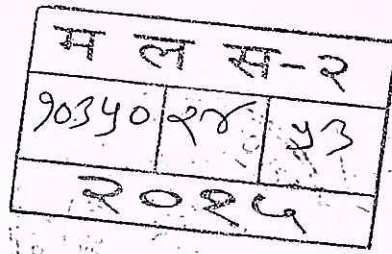 म ल स-२
१०३५० २४ ५३
२०२५